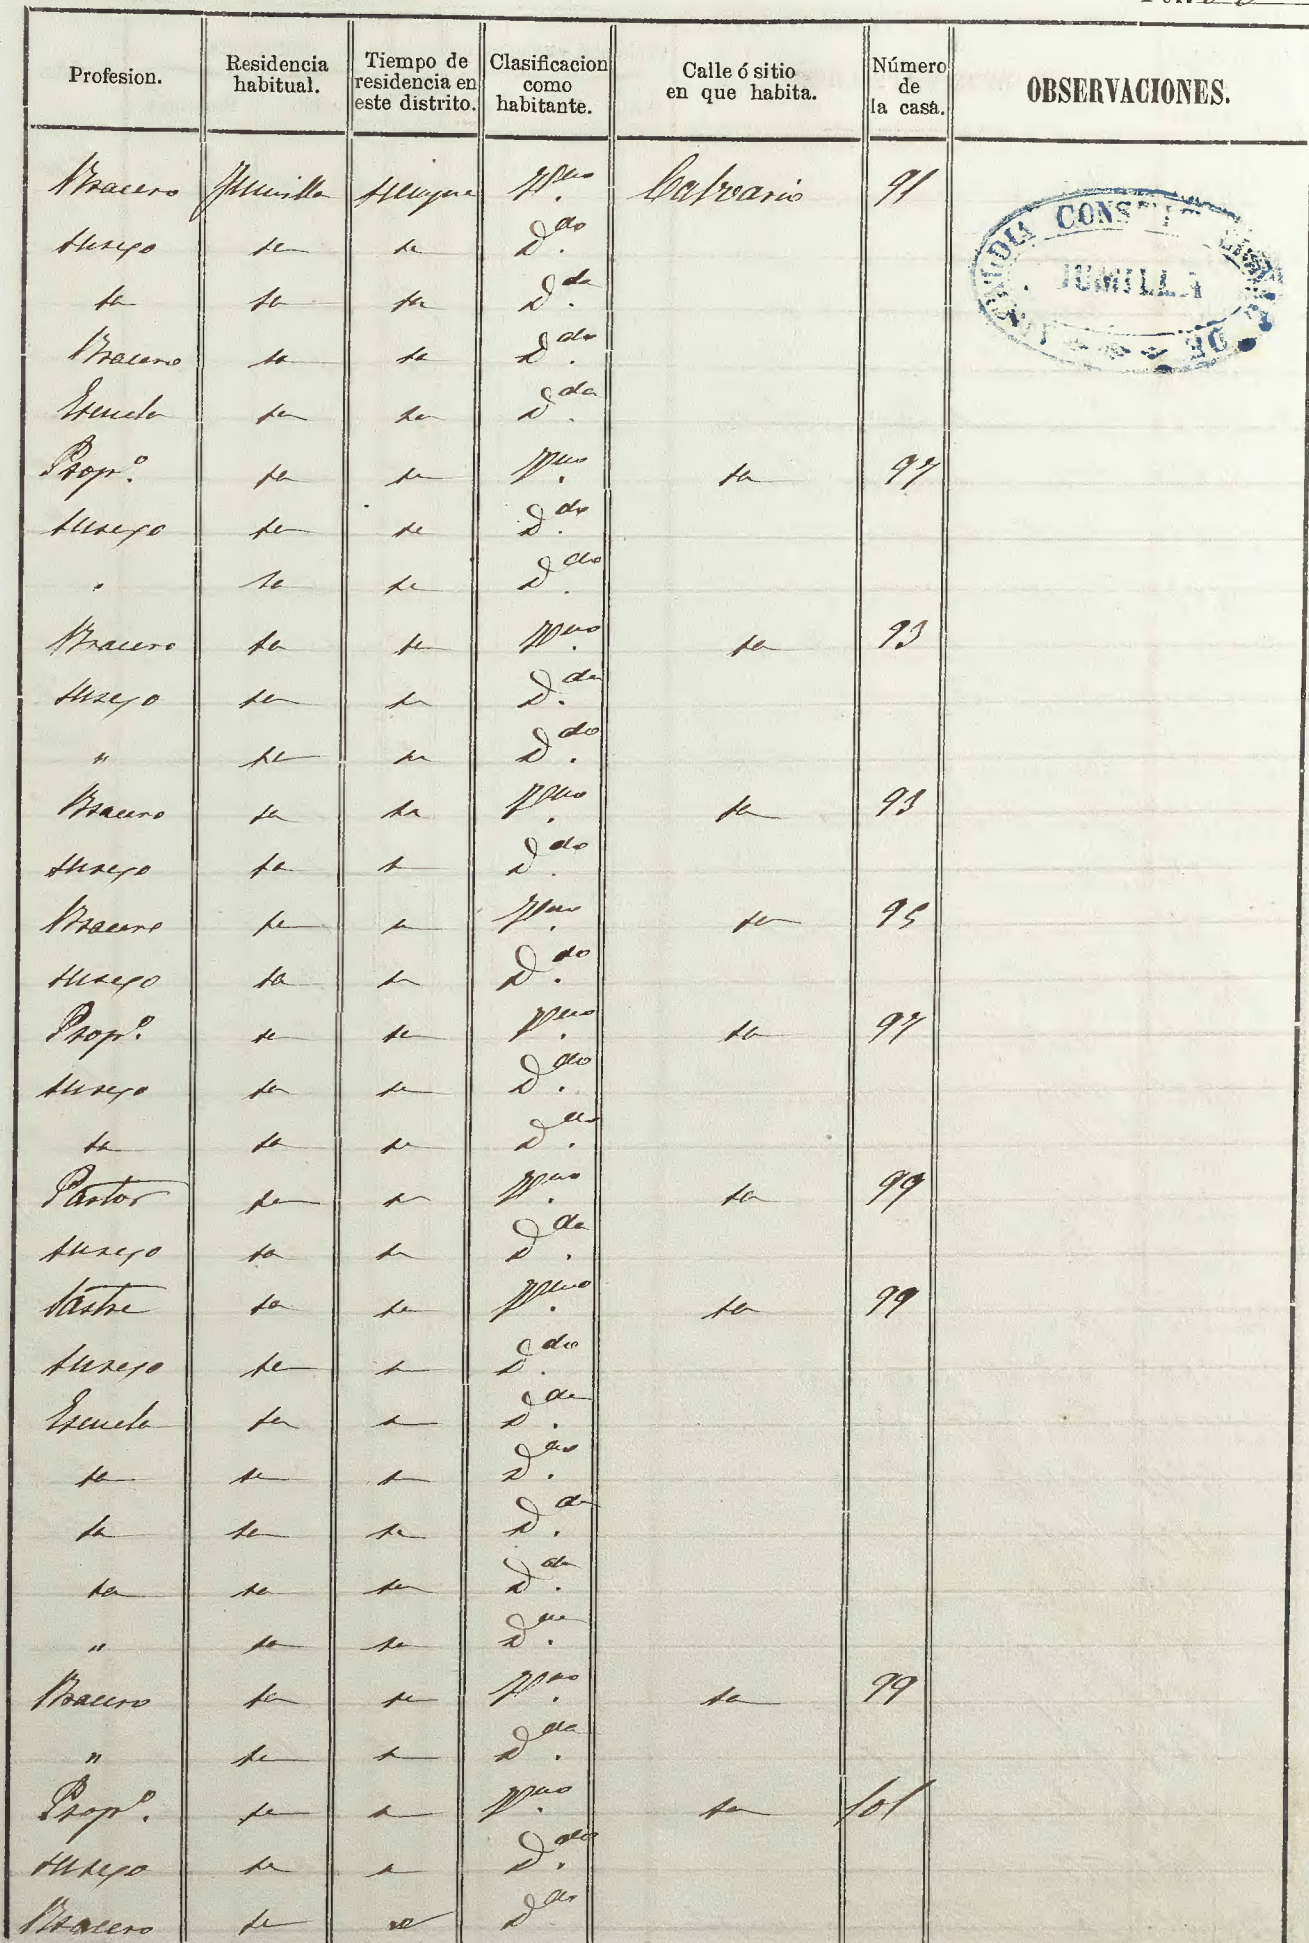 Profesion. Residencia habitual. Tiempo de residencia en este distrito. Clasificacion como habitante. Calle ó sitio en que habita. Número de la casa. OBSERVACIONES.
Bracero Jumilla siempre v.no Calvario 91
su sexo id id D.do
id id id D.da
Bracero id id D.do
Escuela id id D.da
Prop.o id id v.no id 97
su sexo id id D.do
" id id D.do
Bracero id id v.no id 93
su sexo id id D.da
" id id D.do
Bracero id id v.no id 93
su sexo id id D.do
Bracero id id v.no id 95
su sexo id id D.do
Prop.o id id v.no id 97
su sexo id id D.do
id id id D.do
Pastor id id v.no id 99
su sexo id id D.da
Sastre id id v.no id 99
su sexo id id D.do
Escuela id id D.da
id id id D.do
id id id D.da
id id id D.da
" id id D.da
Bracero id id v.no id 99
" id id D.da
Prop.o id id v.no id 101
su sexo id id D.do
Bracero id id D.do
ALCALDIA CONSTITUCIONAL DE
JUMILLA